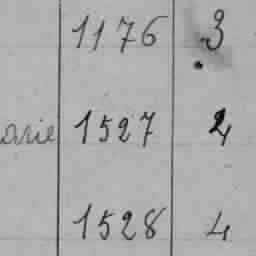 1176 3
arie 1527 4
1528 4